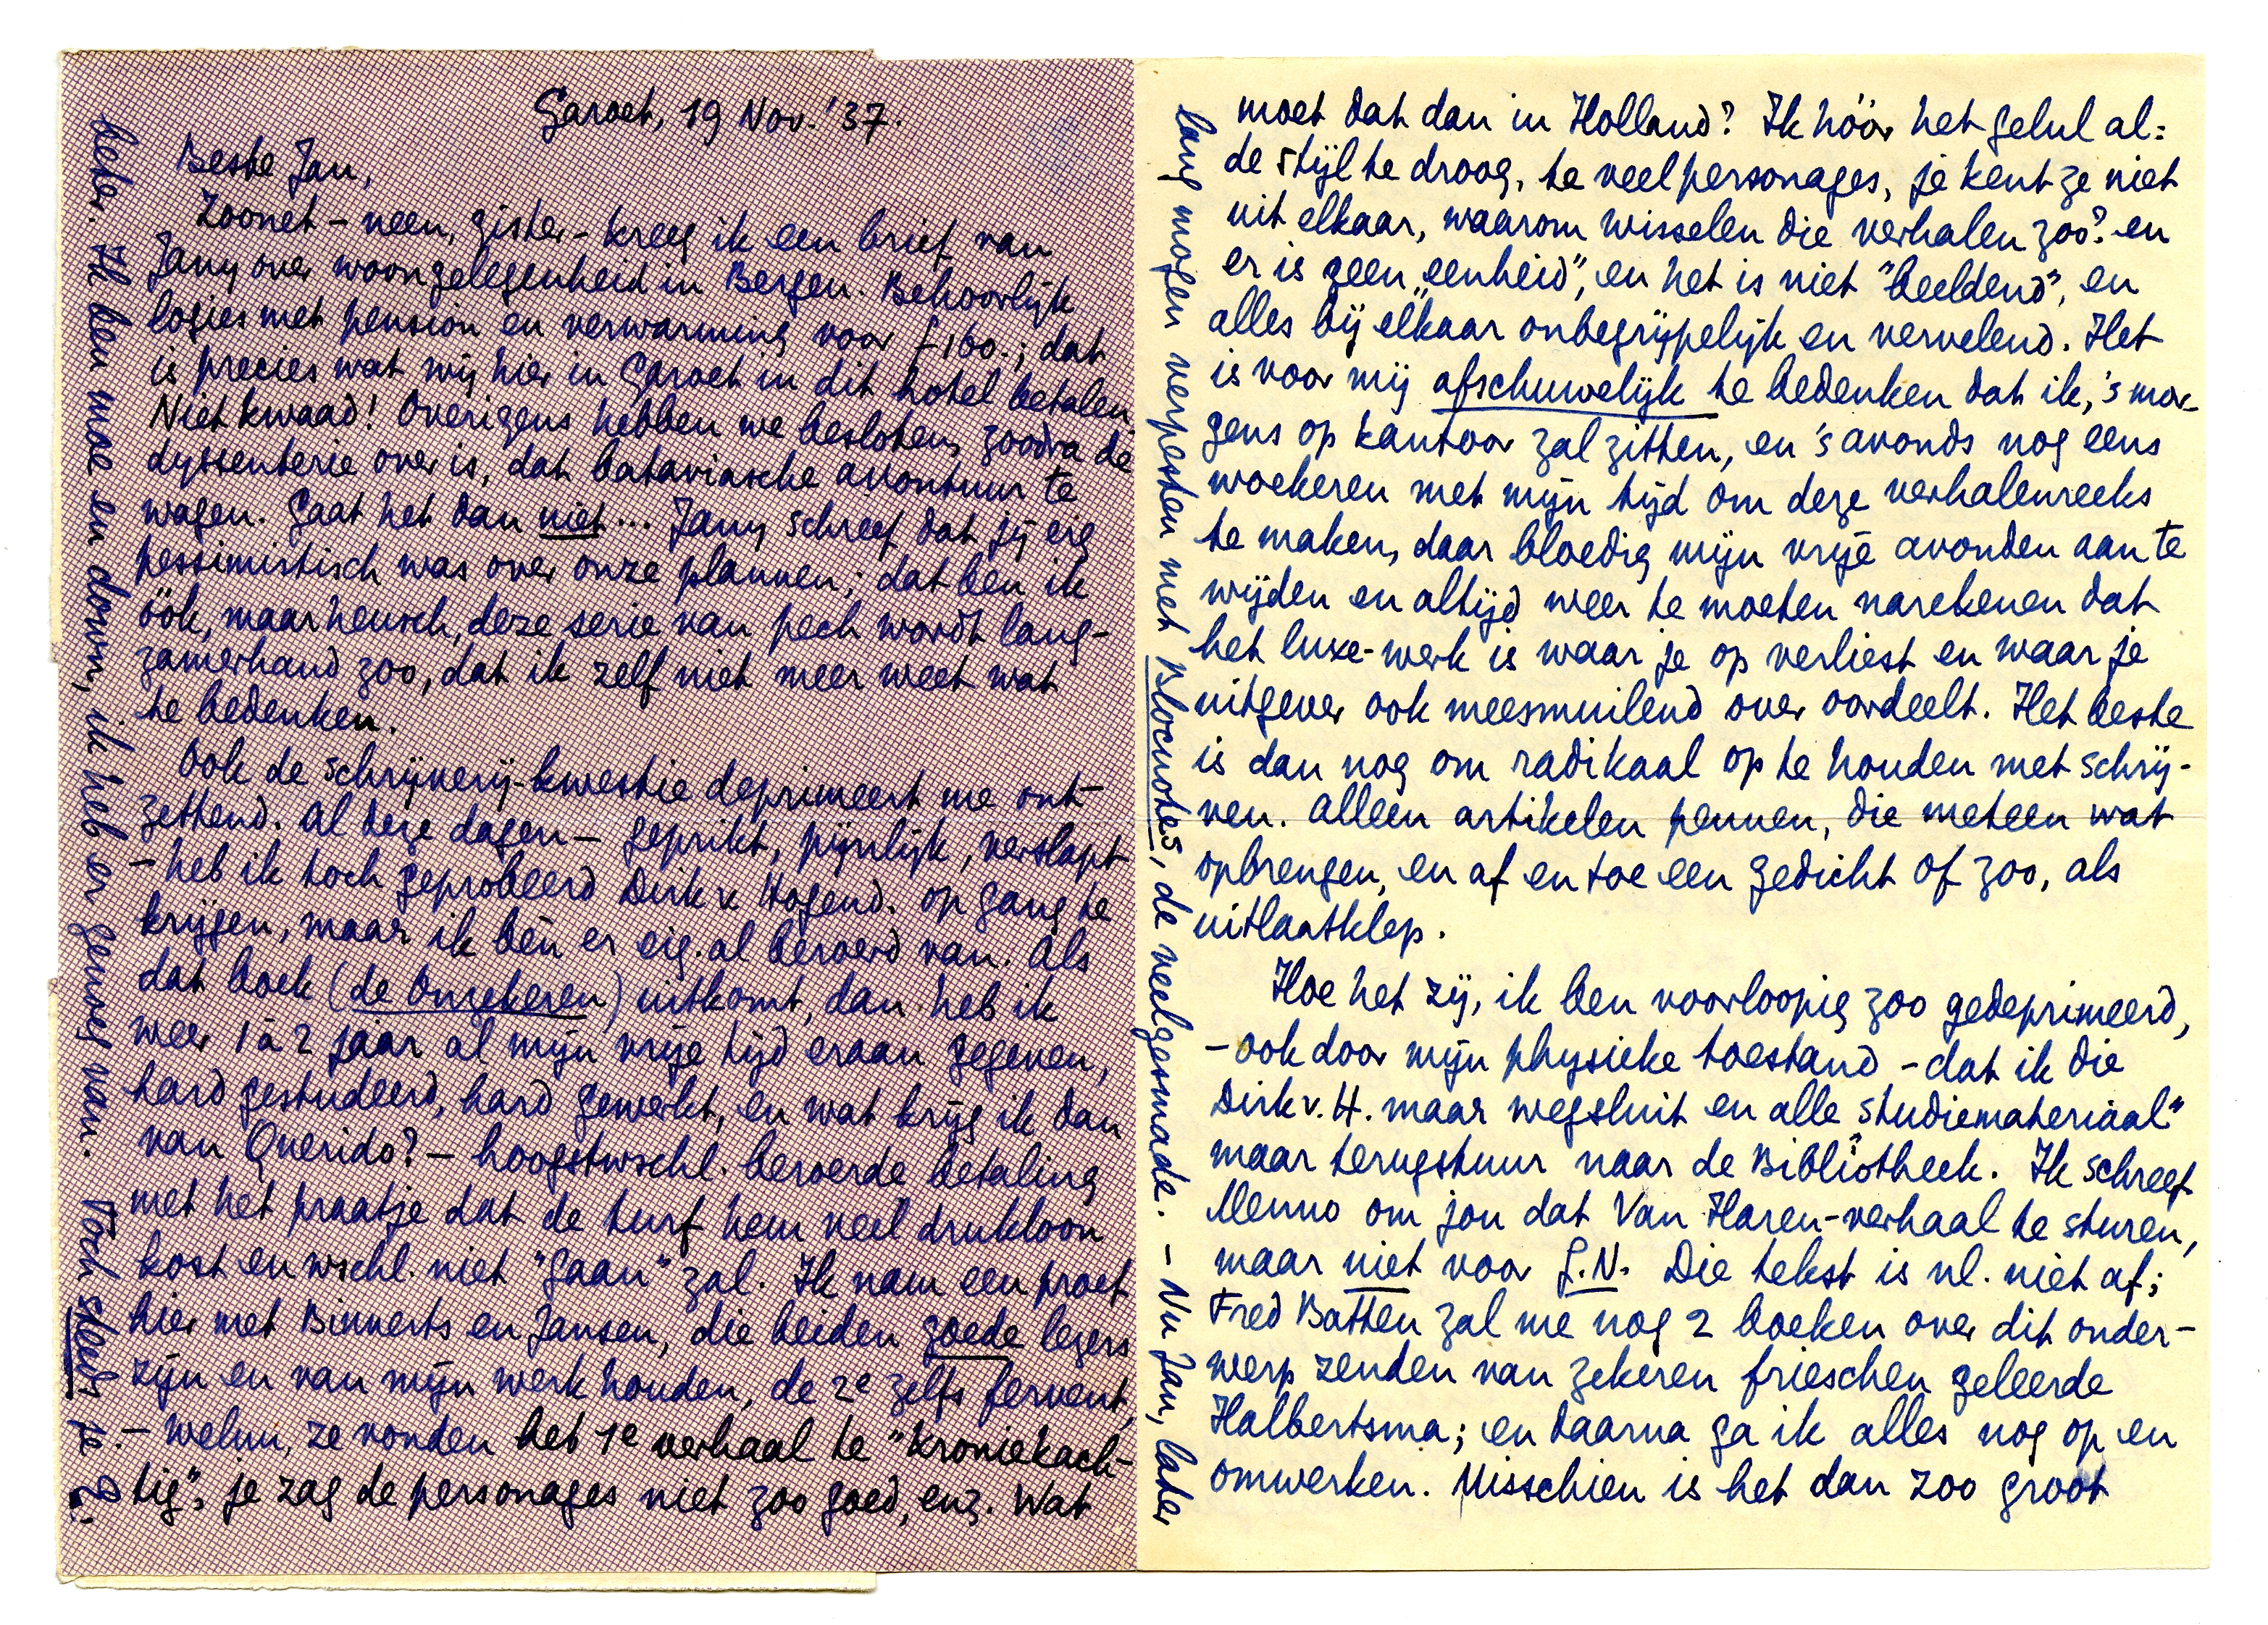 Garoet, 19 Nov. '37.
Beste Jan,
Zoonet – neen, gister – kreeg ik een brief van
Jany over woongelegenheid in Bergen. Behoorlijk
logies met pension en verwarming voor f 160.; dat
is precies wat wij hier in Garoet in dit hotel betalen.
Niet kwaad! Overigens hebben we besloten, zoodra de
dyssenterie over is, dat bataviasche avontuur te
wagen. Gaat het dan niet... Jany schreef dat jij eig.
pessimistisch was over onze plannen; dat ben ik
óók, maar heusch, deze serie van pech wordt lang-
zamerhand zoo, dat ik zelf niet meer weet wat
te bedenken.
Ook de schrijverij-kwestie deprimeert me ont-
zettend. Al deze dagen – geprikt, pijnlijk, verslapt
– heb ik toch geprobeerd Dirk v. Hogend. op gang te
krijgen, maar ik ben er eig. al beroerd van. Als
dat boek (de Onzekeren) uitkomt, dan heb ik
weer 1 à 2 jaar al mijn vrije tijd eraan gegeven,
hard gestudeerd, hard gewerkt, en wat krijg ik dan
van Querido? – hoogstwschl. beroerde betaling
met het praatje dat de turf hem veel drukloon
kost en wschl. niet "gaan" zal. Ik nam een proef
hier met Binnerts en Jansen, die beiden goede lezers
zijn en van mijn werk houden, de 2e zelfs fervent,
– welnu, ze vonden het 1e verhaal te "kroniekach-
tig", je zag de personages niet zoo goed, enz. Wat
beter. Ik ben moe en down, ik heb er genoeg van. Toch steeds je E.
moet dat dan in Holland? Ik hóór het gelul al:
de stijl te droog, te veel personages, je kent ze niet
uit elkaar, waarom wisselen die verhalen zoo? en
er is geen "eenheid", en het is niet "beeldend", en
alles bij elkaar onbegrijpelijk en vervelend. Het
is voor mij afschuwelijk te bedenken dat ik, 's mor-
gens op kantoor zal zitten, en 's avonds nog eens
woekeren met mijn tijd om deze verhalenreeks
te maken, daar bloedig mijn vrije avonden aan te
wijden en altijd weer te moeten narekenen dat
het luxe-werk is waar je op verliest en waar je
uitgever ook meesmuilend over oordeelt. Het beste
is dan nog om radikaal op te houden met schrij-
ven. Alleen artikelen pennen, die meteen wat
opbrengen, en af en toe een gedicht of zoo, als
uitlaatklep.
Hoe het zij, ik ben voorloopig zoo gedeprimeerd,
– ook door mijn physieke toestand – dat ik die
Dirk v. H. maar wegsluit en alle "studiemateriaal"
maar terugstuur naar de Bibliotheek. Ik schreef
Menno om jou dat Van Haren-verhaal te sturen,
maar niet voor G.N. Die tekst is nl. niet af;
Fred Batten zal me nog 2 boeken over dit onder-
werp zenden van zekeren frieschen geleerde
Halbertsma; en daarna ga ik alles nog op en
omwerken. Misschien is het dan zoo groot
lang mogen verpesten met Blocnotes, de veelgesmade. – Nu Jan, later